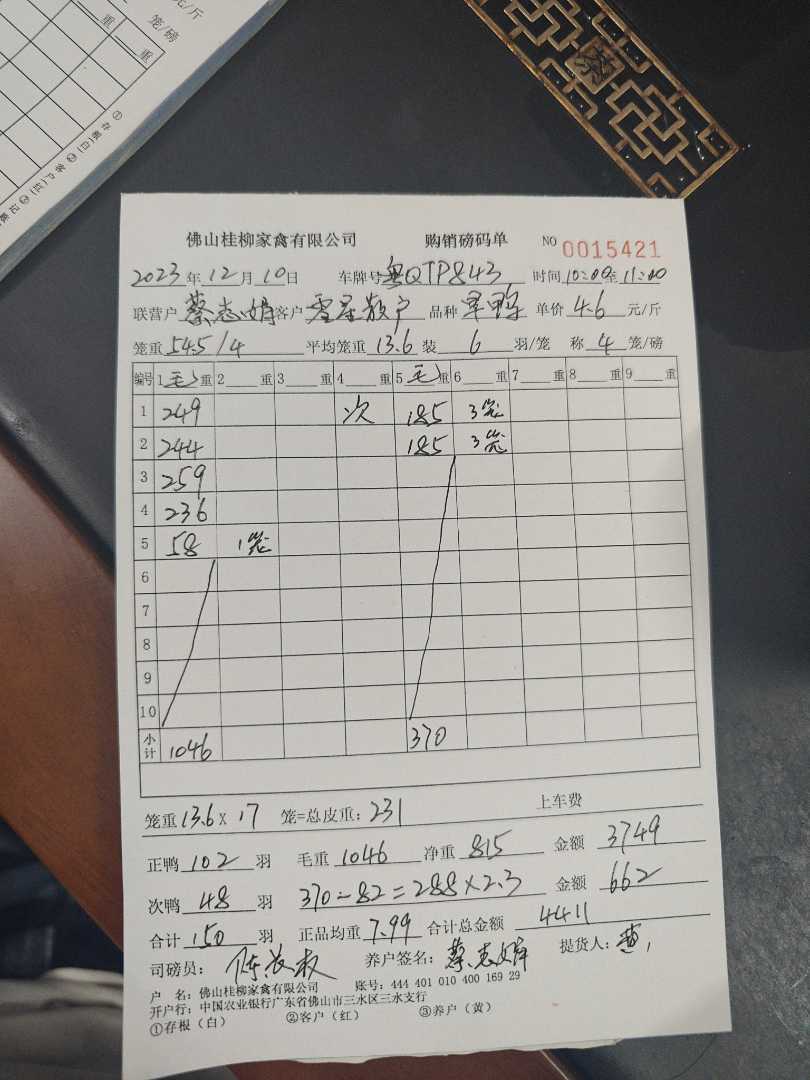 元/斤
重 笼/磅
重
①存根(白)②客户(红)③
佛山桂柳家禽有限公司 购销磅码单 NO 0015421
2023年12月10日 车牌号粤QTP843 时间10:00至11:00
联营户蔡志娟客户零星散户 品种旱鸭 单价4.6元/斤
笼重54.5/4 平均笼重13.6装6羽/笼 称4笼/磅
编号 1毛重 2重 3重 4重 5毛重 6重 7重 8重 9重
1 249 次 185 3笼
2 244 185 3笼
3 259
4 236
5 58 1笼
6
7
8
9
10
小计 1046 370
笼重13.6×17笼=总皮重:231 上车费
正鸭102羽 毛重1046净重815 金额3749
次鸭48羽 370-82=288×2.3 金额662
合计150羽 正品均重7.99合计总金额4411
司磅员: 养户签名:蔡志娟 提货人:黄
户 名:佛山桂柳家禽有限公司 账号:444 401 010 400 169 29
开户行:中国农业银行广东省佛山市三水区三水支行
①存根(白) ②客户(红) ③养户(黄)